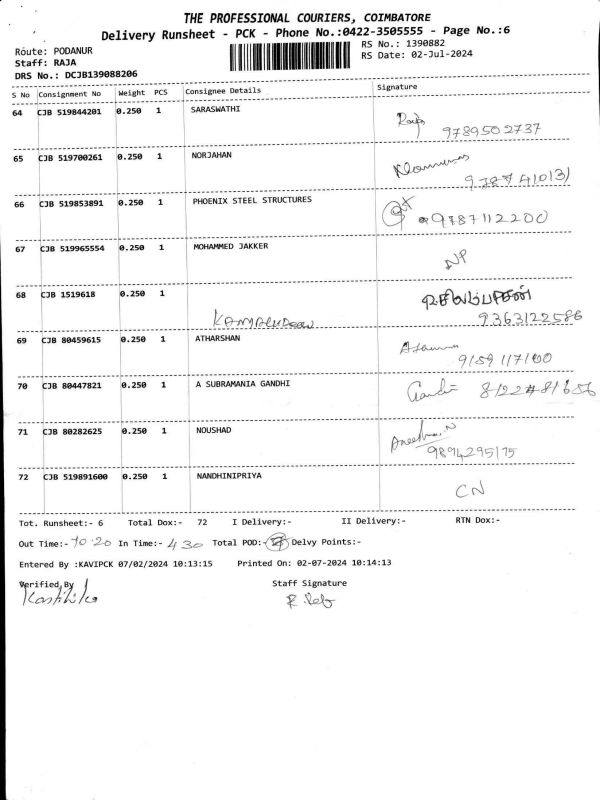 THE PROFESSIONAL COURIERS, COIMBATORE
Delivery Runsheet - PCK - Phone No.:0422-3505555 - Page No.:6
Route: PODANUR
RS No.: 1390882
Staff: RAJA
RS Date: 02-Jul-2024
DRS No.: DCJB139088206
S No Consignment No Weight PCS Consignee Details Signature
64 CJB 519844201 0.250 1 SARASWATHI
9789502737
65 CJB 519700261 0.250 1 NORJAHAN
66 CJB 519853891 0.250 1 PHOENIX STEEL STRUCTURES
9787112200
67 CJB 519965554 0.250 1 MOHAMMED JAKKER
NP
68 CJB 1519618 0.250 1
9363122586
69 CJB 80459615 0.250 1 ATHARSHAN
9159117100
70 CJB 80447821 0.250 1 A SUBRAMANIA GANDHI
Gandhi
71 CJB 80282625 0.250 1 NOUSHAD
9894295175
72 CJB 519891600 0.250 1 NANDHINIPRIYA
CN
Tot. Runsheet:- 6 Total Dox:- 72 I Delivery:- II Delivery:- RTN Dox:-
Out Time:- 10.20 In Time:- 4 30 Total POD:- Delvy Points:-
Entered By :KAVIPCK 07/02/2024 10:13:15 Printed On: 02-07-2024 10:14:13
Verified By Staff Signature